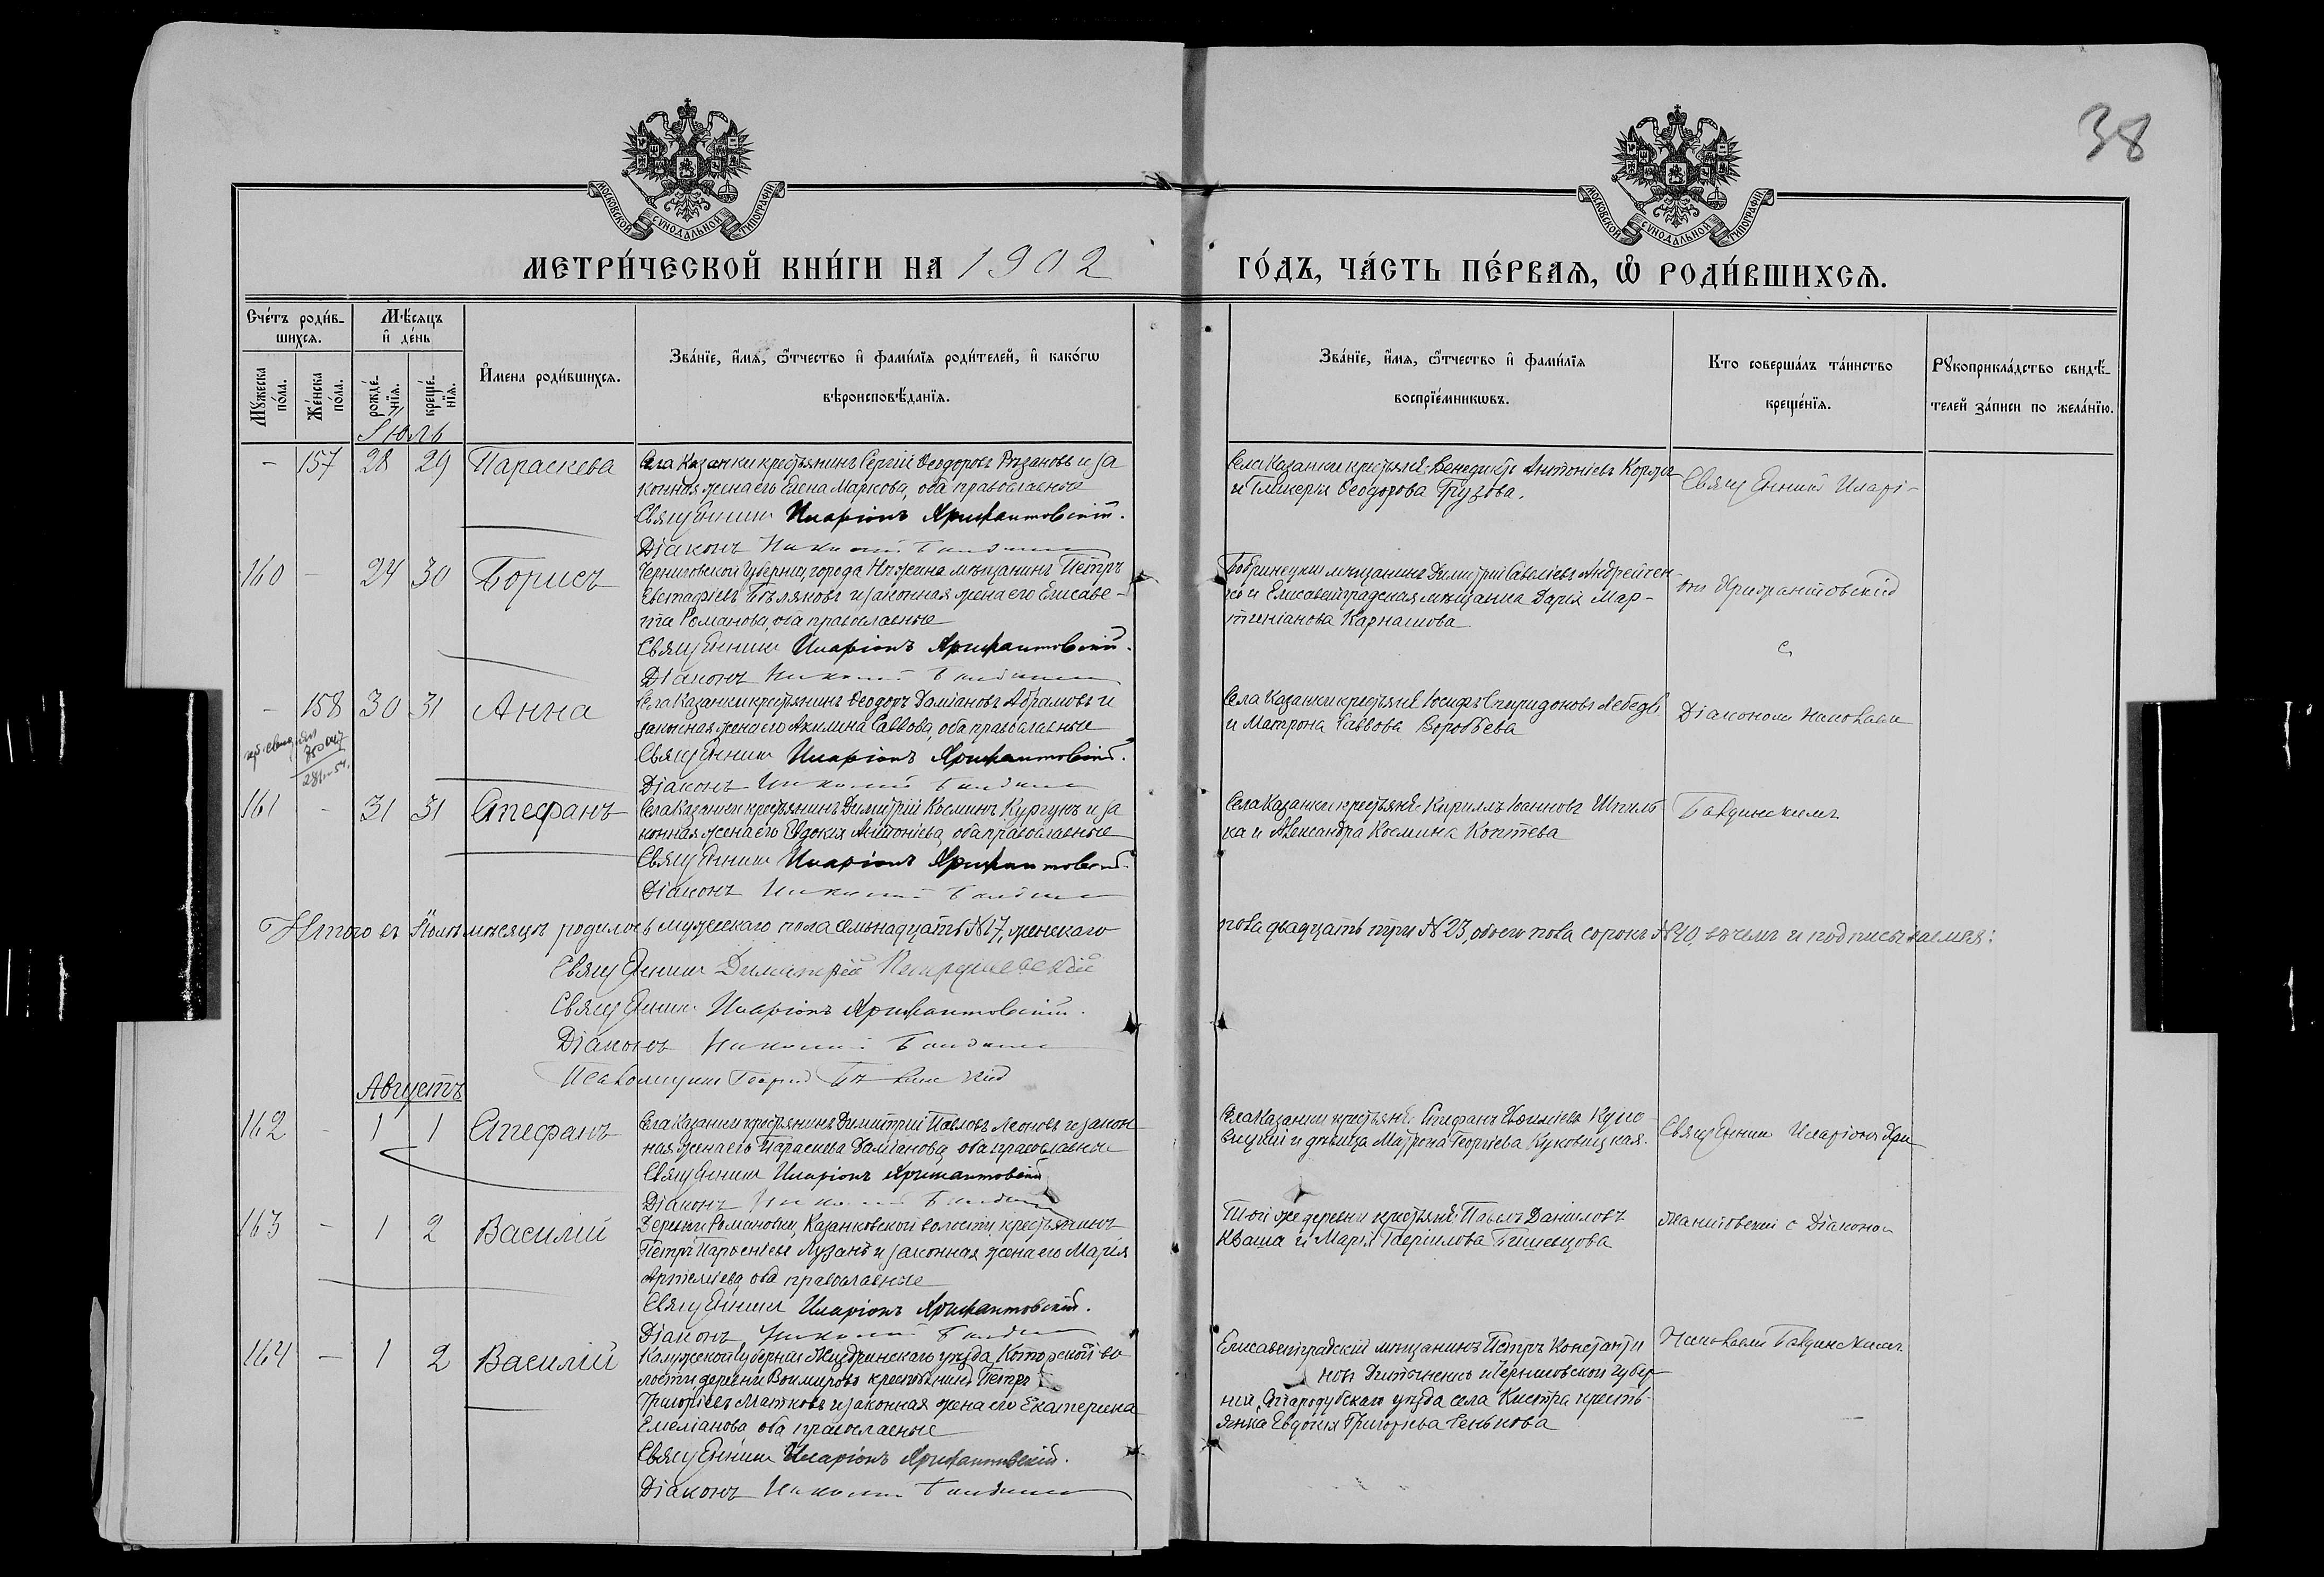 38
МОСКОВСКОЙ СѴНОДАЛЬНОЙ ТИПОГРАФІИ
МОСКОВСКОЙ СѴНОДАЛЬНОЙ ТИПОГРАФІИ
МЕТРИ́ЧЕСКОЙ КНИ́ГИ НА 1902
ГО́ДЪ, ЧА́СТЬ ПЕ́РВАѦ, Ѡ҆ РОДИ́ВШИХСѦ.
Сче́тъ роди́в-
шихсѧ.
Мѣ́сѧцъ
и҆ де́нь
Мꙋ́жеска
по́ла.
Же́нска
по́ла.
рожде́-
нїѧ.
креще́-
нїѧ.
И҆мена роди́вшихсѧ.
Зва́нїе, и҆́мѧ, ѻ҆́тчество и҆ фами́лїѧ роди́телей, и҆ како́гѡ
вѣроисповѣ́данїѧ.
Зва́нїе, и҆́мѧ, ѻ҆́тчество и҆ фами́лїѧ
воспрїе́мникѡвъ.
Кто соверша́лъ та́инство
креще́нїѧ.
Рꙋкоприкла́дство свидѣ́-
телей за́писи по жела́нїю.
Іюль
— 157 28 29 Параскева
Села Казанки крестьянинъ Сергій Ѳеодоровъ Рязановъ и за
конная жена его Елена Маркова, оба православные
Священникъ Иларіонъ Хрисантовскій.
Діаконъ Николай
Села Казанки крестьяне: Венедиктъ Антоніевъ
и Гликерія Ѳеодорова Грузова.
Священникъ Иларі-
160 — 24 30 Борисъ
Черниговской губерніи, города Нѣжина мѣщанинъ Петръ
Евстафіевъ Бѣляковъ и законная жена его Елисаве-
та Романова, оба православные
Священникъ Иларіонъ Хрисантовскій.
Діаконъ Николай
Бобринецкій мѣщанинъ Димитрій Савеліевъ Андрейчен-
ко и Елисаветградская мѣщанка Дарія Мар-
тиніанова Карнашова.
онъ Хрисантовскій
с
— 158 30 31 Анна
Села Казанки крестьянинъ Ѳеодоръ Даміановъ Абрамовъ и
законная жена его Акилина Саввова, оба православные
Священникъ Иларіонъ Хрисантовскій.
Діаконъ Николай
Села Казанки крестьяне: Іосифъ Спиридоновъ Лебедь
и Матрона Саввова Воробьева
Діакономъ Николаемъ
161 — 31 31 Стефанъ
Села Казанки крестьянинъ Димитрій Косминъ Кургунъ и за
конная жена его Евдокія Антоніева, оба православные
Священникъ Иларіонъ Хрисантовскій.
Діаконъ Николай
Села Казанки крестьяне: Кириллъ Іоанновъ Шпиль
ка и Александра Космина Коптева
Итого въ Іюлѣ мѣсяцѣ родилось мужескаго пола семьнадцать № 17, женскаго
пола двадцать три № 23, обоего пола сорокъ № 40, въ чемъ и подписываемся:
Священникъ Димитрій
Священникъ Иларіонъ Хрисантовскій.
Діаконъ Николай
Псаломщикъ Георгій
Августъ
162 — 1 1 Стефанъ
Села Казанки крестьянинъ Димитрій Павловъ Леоновъ и закон
ная жена его Параскева Даміанова, оба православные
Священникъ Иларіонъ Хрисантовскій
Діаконъ Николай
Села Казанки крестьяне: Стефанъ Евфиміевъ Куко
вицкій и дѣвица Матрона Георгіева Куковицкая.
Священникъ Иларіонъ Хри
163 — 1 2 Василій
Деревни Романовки, Казанковской волости, крестьянинъ
Петръ Парѳеніевъ Лузанъ и законная жена его Марія
Артеміева, оба православные
Священникъ Иларіонъ Хрисантовскій.
Діаконъ Николай
Той же деревни крестьяне: Павелъ Даниловъ
Кваша и Марія Гавріилова
сантовскій с Діакономъ
164 — 1 2 Василій
Калужской губерніи Жиздринскаго уѣзда, Которской во
лости деревни крестьянинъ Петръ
Григоріевъ Матковъ и законная жена его Екатерина
Емеліанова оба православные
Священникъ Иларіонъ Хрисантовскій.
Діаконъ Николай
Елисаветградскій мѣщанинъ Петръ Константи
новъ и Черниговской губер-
ніи, Стародубскаго уѣзда села Кистра кресть-
янка Евдокія Григорьева Сенькова
Николаемъ